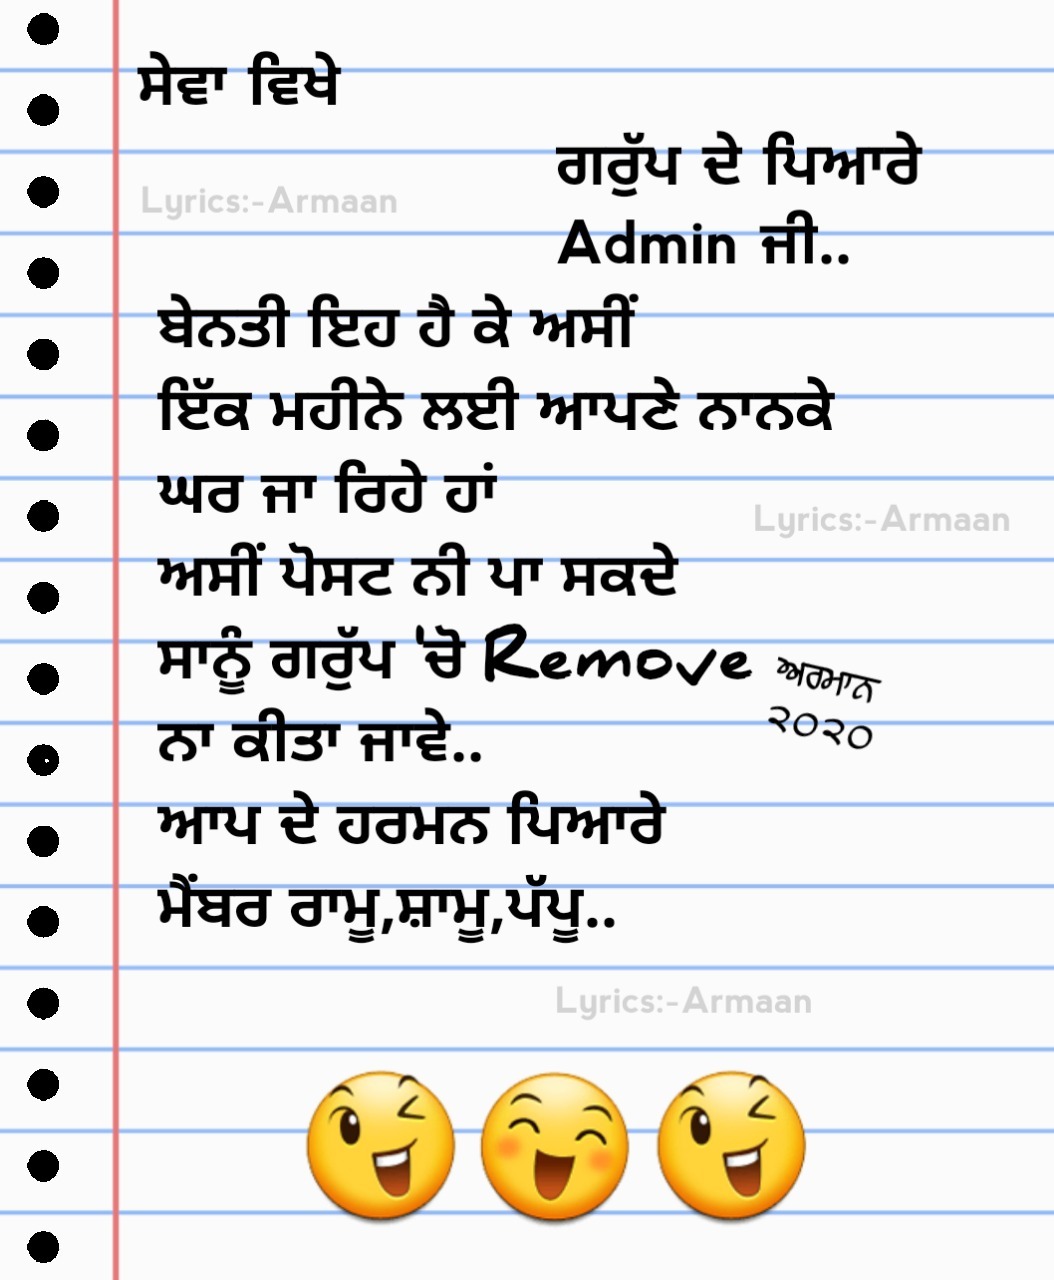 ਸੇਵਾ ਵਿਖੇ
ਗਰੁੱਪ ਦੇ ਪਿਆਰੇ
Lyrics:-Armaan
Admin ਜੀ..
ਬੇਨਤੀ ਇਹ ਹੈ ਕੇ ਅਸੀਂ
ਇੱਕ ਮਹੀਨੇ ਲਈ ਆਪਣੇ ਨਾਨਕੇ
ਘਰ ਜਾ ਰਿਹੇ ਹਾਂ
Lyrics:-Armaan
ਅਸੀਂ ਪੋਸਟ ਨੀ ਪਾ ਸਕਦੇ
ਸਾਨੂੰ ਗਰੁੱਪ 'ਚੋ Remove
ਅਰਮਾਨ
੨੦੨੦
ਨਾ ਕੀਤਾ ਜਾਵੇ..
ਆਪ ਦੇ ਹਰਮਨ ਪਿਆਰੇ
ਮੈਂਬਰ ਰਾਮੂ,ਸ਼ਾਮੂ,ਪੱਪੂ..
Lyrics:-Armaan